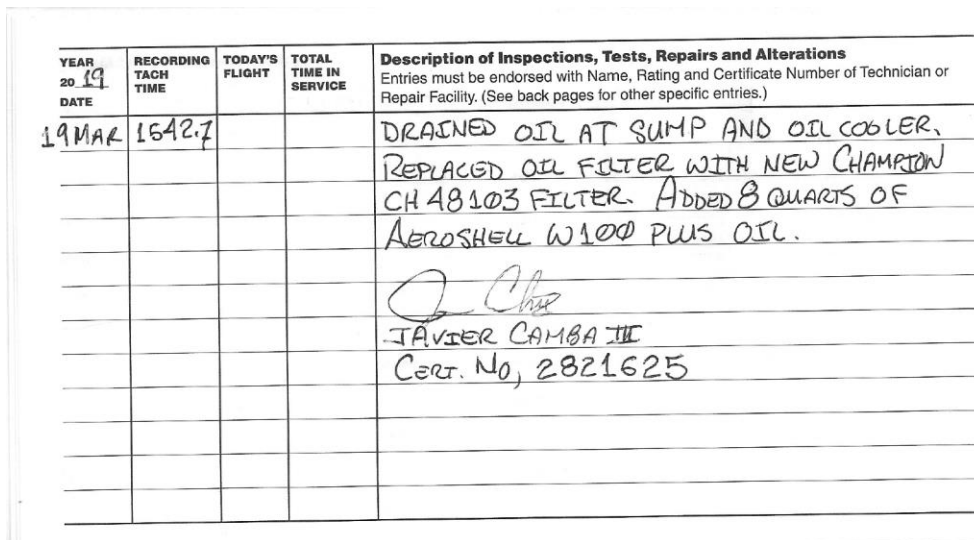 YEAR
20 19
DATE
RECORDING
TACH
TIME
TODAY'S
FLIGHT
TOTAL
TIME IN
SERVICE
Description of Inspections, Tests, Repairs and Alterations
Entries must be endorsed with Name, Rating and Certificate Number of Technician or
Repair Facility. (See back pages for other specific entries.)
19 MAR 1542.7 DRAINED OIL AT SUMP AND OIL COOLER.
REPLACED OIL FILTER WITH NEW CHAMPION
CH 48103 FILTER. ADDED 8 QUARTS OF
AEROSHELL W100 PLUS OIL.
JAVIER CAMBA III
CERT. NO, 2821625